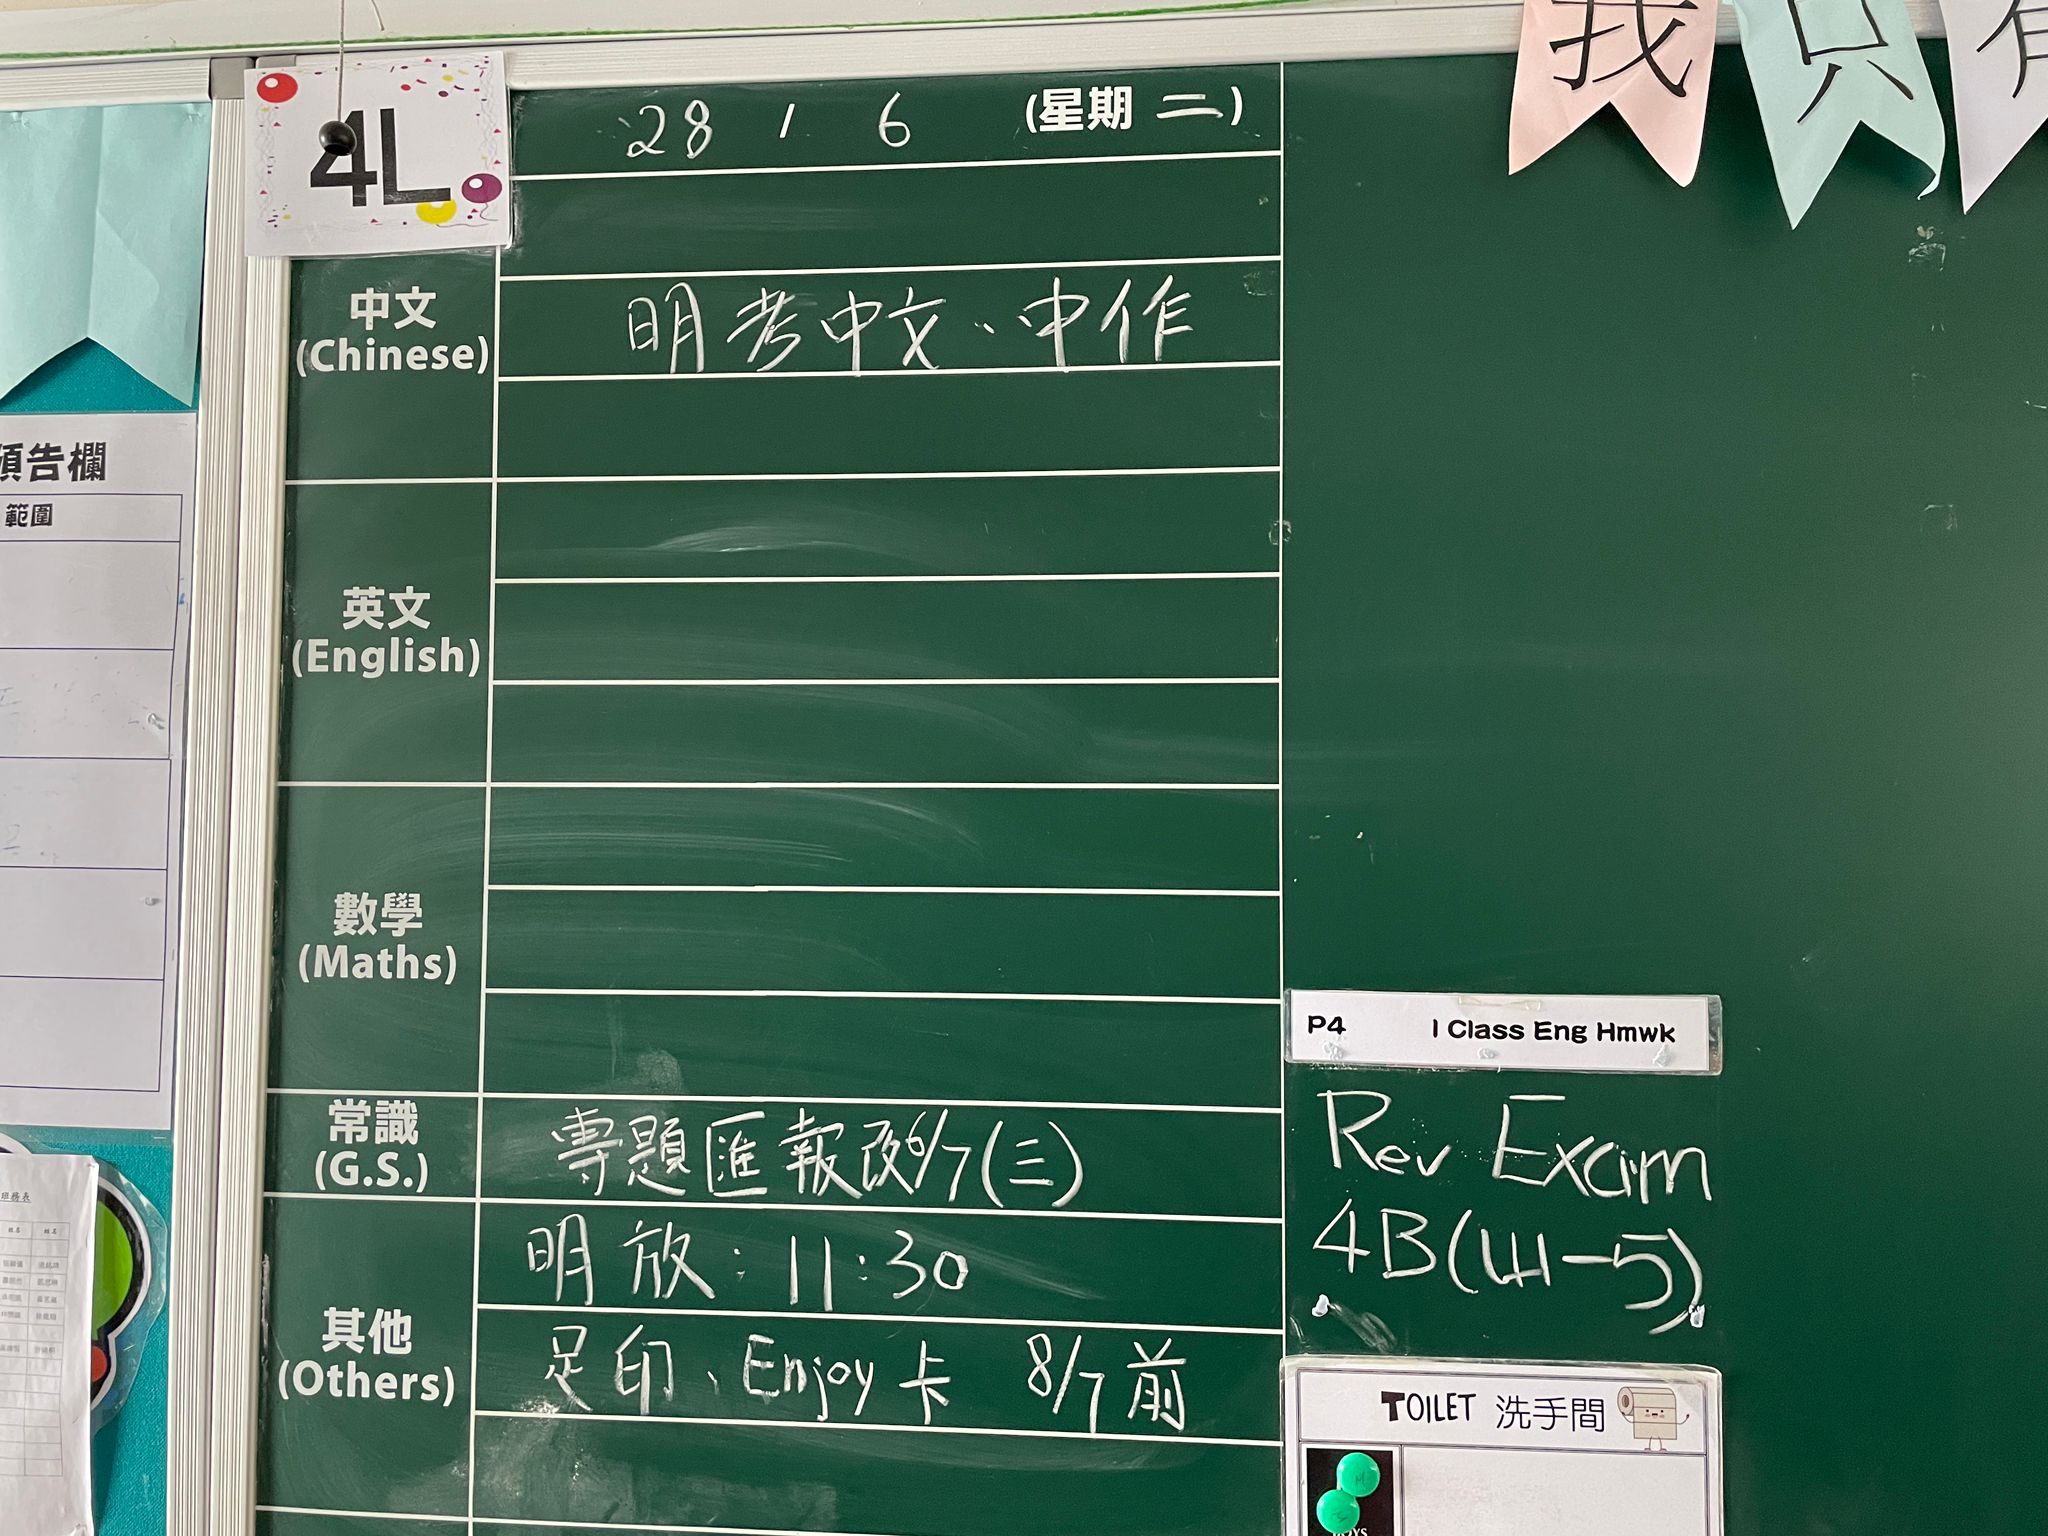 我只
4L
28 / 6 (星期 二)
預告欄
範圍
中文
(Chinese)
明考中文、中作
英文
(English)
數學
(Maths)
P4 I Class Eng Hmwk
Rev Exam
常識
(G.S.)
專題匯報改6/7(三)
4B(U1-5)
明放：11:30
其他
(Others)
足印、Enjoy卡 8/7前
TOILET 洗手間
班務表
姓名 姓名